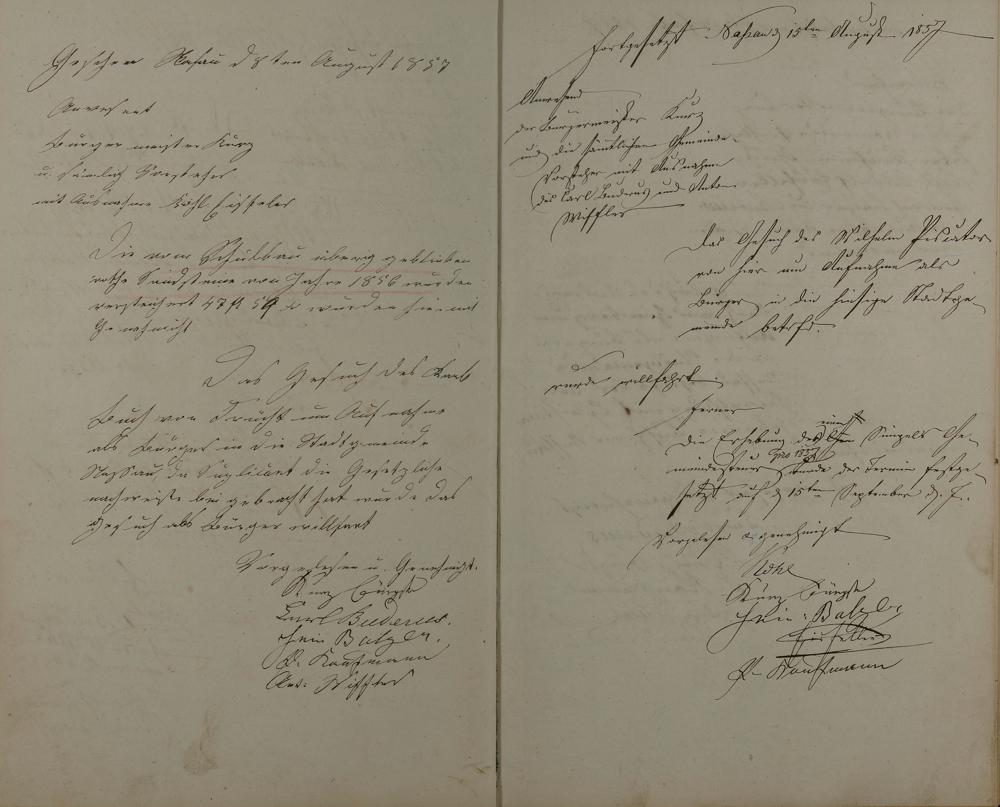 Geschen Nassau d 8ten August 1857
Anwesent
Bürger meister Kurz
u. sämlich Vorsteher
mit Ausnahme Köhl Eisfeler
Die vom Schulbau überig geblieben
rothe Sandsteine vom Jahre 1856 wurden
versteichert 47 fl 54 x wurden hiermit
Genehmicht
Das Gesuch des Karl
Buch von Frücht um Aufnahme
als Bürger in die Stadtgemeinde
Nassau, da Suplicant die Gesetzliche
nachweise bei gebracht hat wurde das
Gesuch als Bürger willfart
Vorgelesen u. Genehmigt.
Kurz Bürgstr
Carl Buderus.
Hein Balzer.
P. Kaufmann
Ant: Wiffler
Fortgesetzt Nassau d 15ten August 1857
Anwesend
der Bürgermeister Kurz
und die sämtlichen Gemeinde-
Vorsteher mit Ausnahme
des Carl Buderus und Anton
Wiffler
Das Gesuch des Wilhelm Piscator
von hier um Aufnahme als
Bürger in die hiesige Stadtge
meinde betrfd.
wurde willfahrt.
ferner
Die Erhebung des Simpels Ge-
meindesteuer pro 1857 wurde der Termin festge
setzt auf d 15ten September d. J.
Vorgelesen & genehmigt
Köhl
Kurz Bürgstr
Hein: Balzer
P. Kaufmann